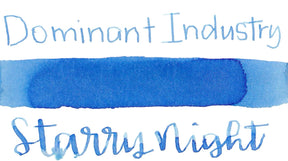 Dominant Industry
Starry Night